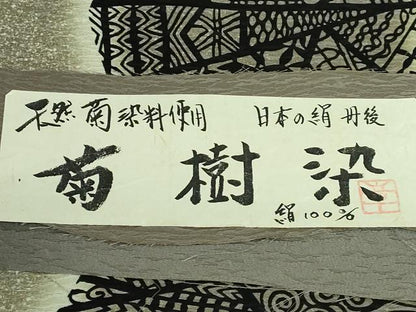 天然菊染料使用 日本の絹 丹後
菊樹染
絹100%